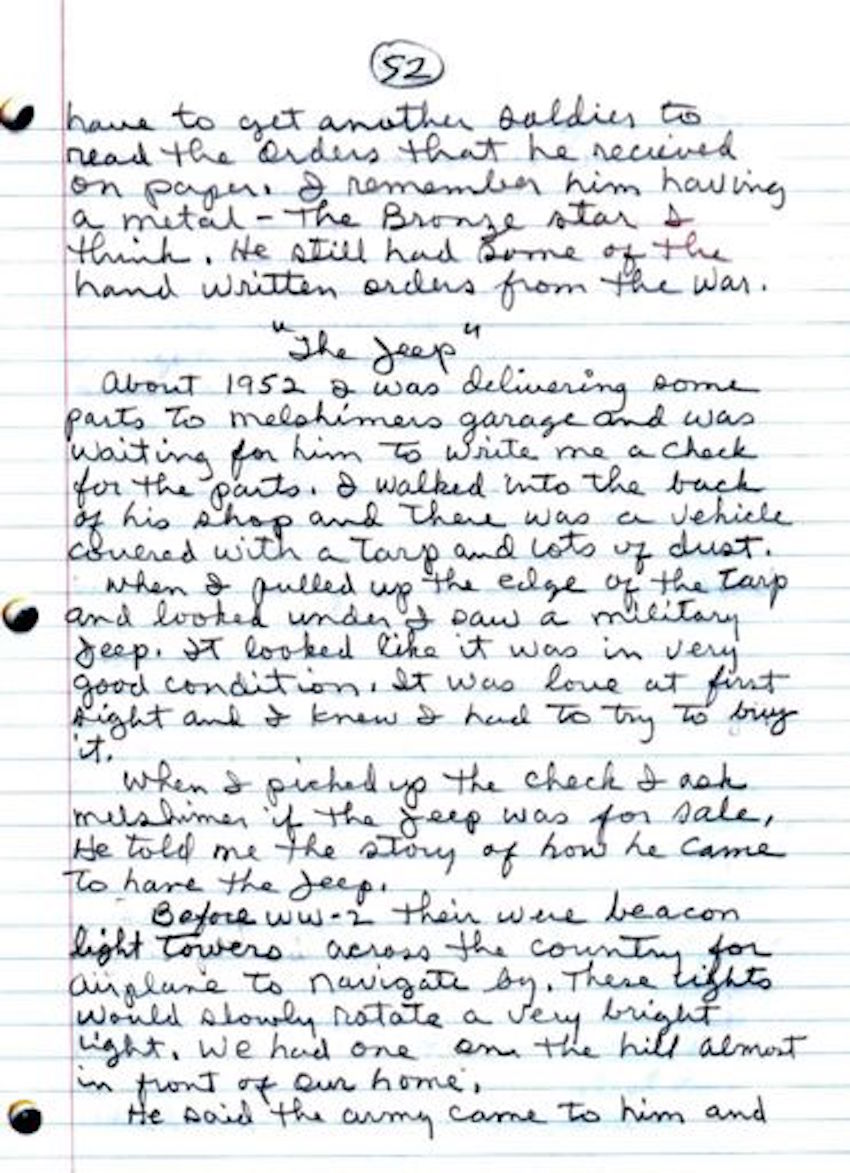 52
have to get another soldier to
read the orders that he recieved
on paper. I remember him having
a metal - The Bronze star I
think. He still had some of the
hand written orders from the war.
"The Jeep"
About 1952 I was delivering some
parts to melshimers garage and was
waiting for him to write me a check
for the parts. I walked into the back
of his shop and there was a vehicle
covered with a tarp and lots of dust.
When I pulled up the edge of the tarp
and looked under I saw a military
Jeep. It looked like it was in very
good condition. It was love at first
sight and I knew I had to try to buy
it.
When I picked up the check I ask
melshimer if the Jeep was for sale,
He told me the story of how he came
to have the Jeep.
Before WW-2 their were beacon
light towers across the country for
airplane to navigate by. These lights
would slowly rotate a very bright
light. We had one on the hill almost
in front of our home.
He said the army came to him and